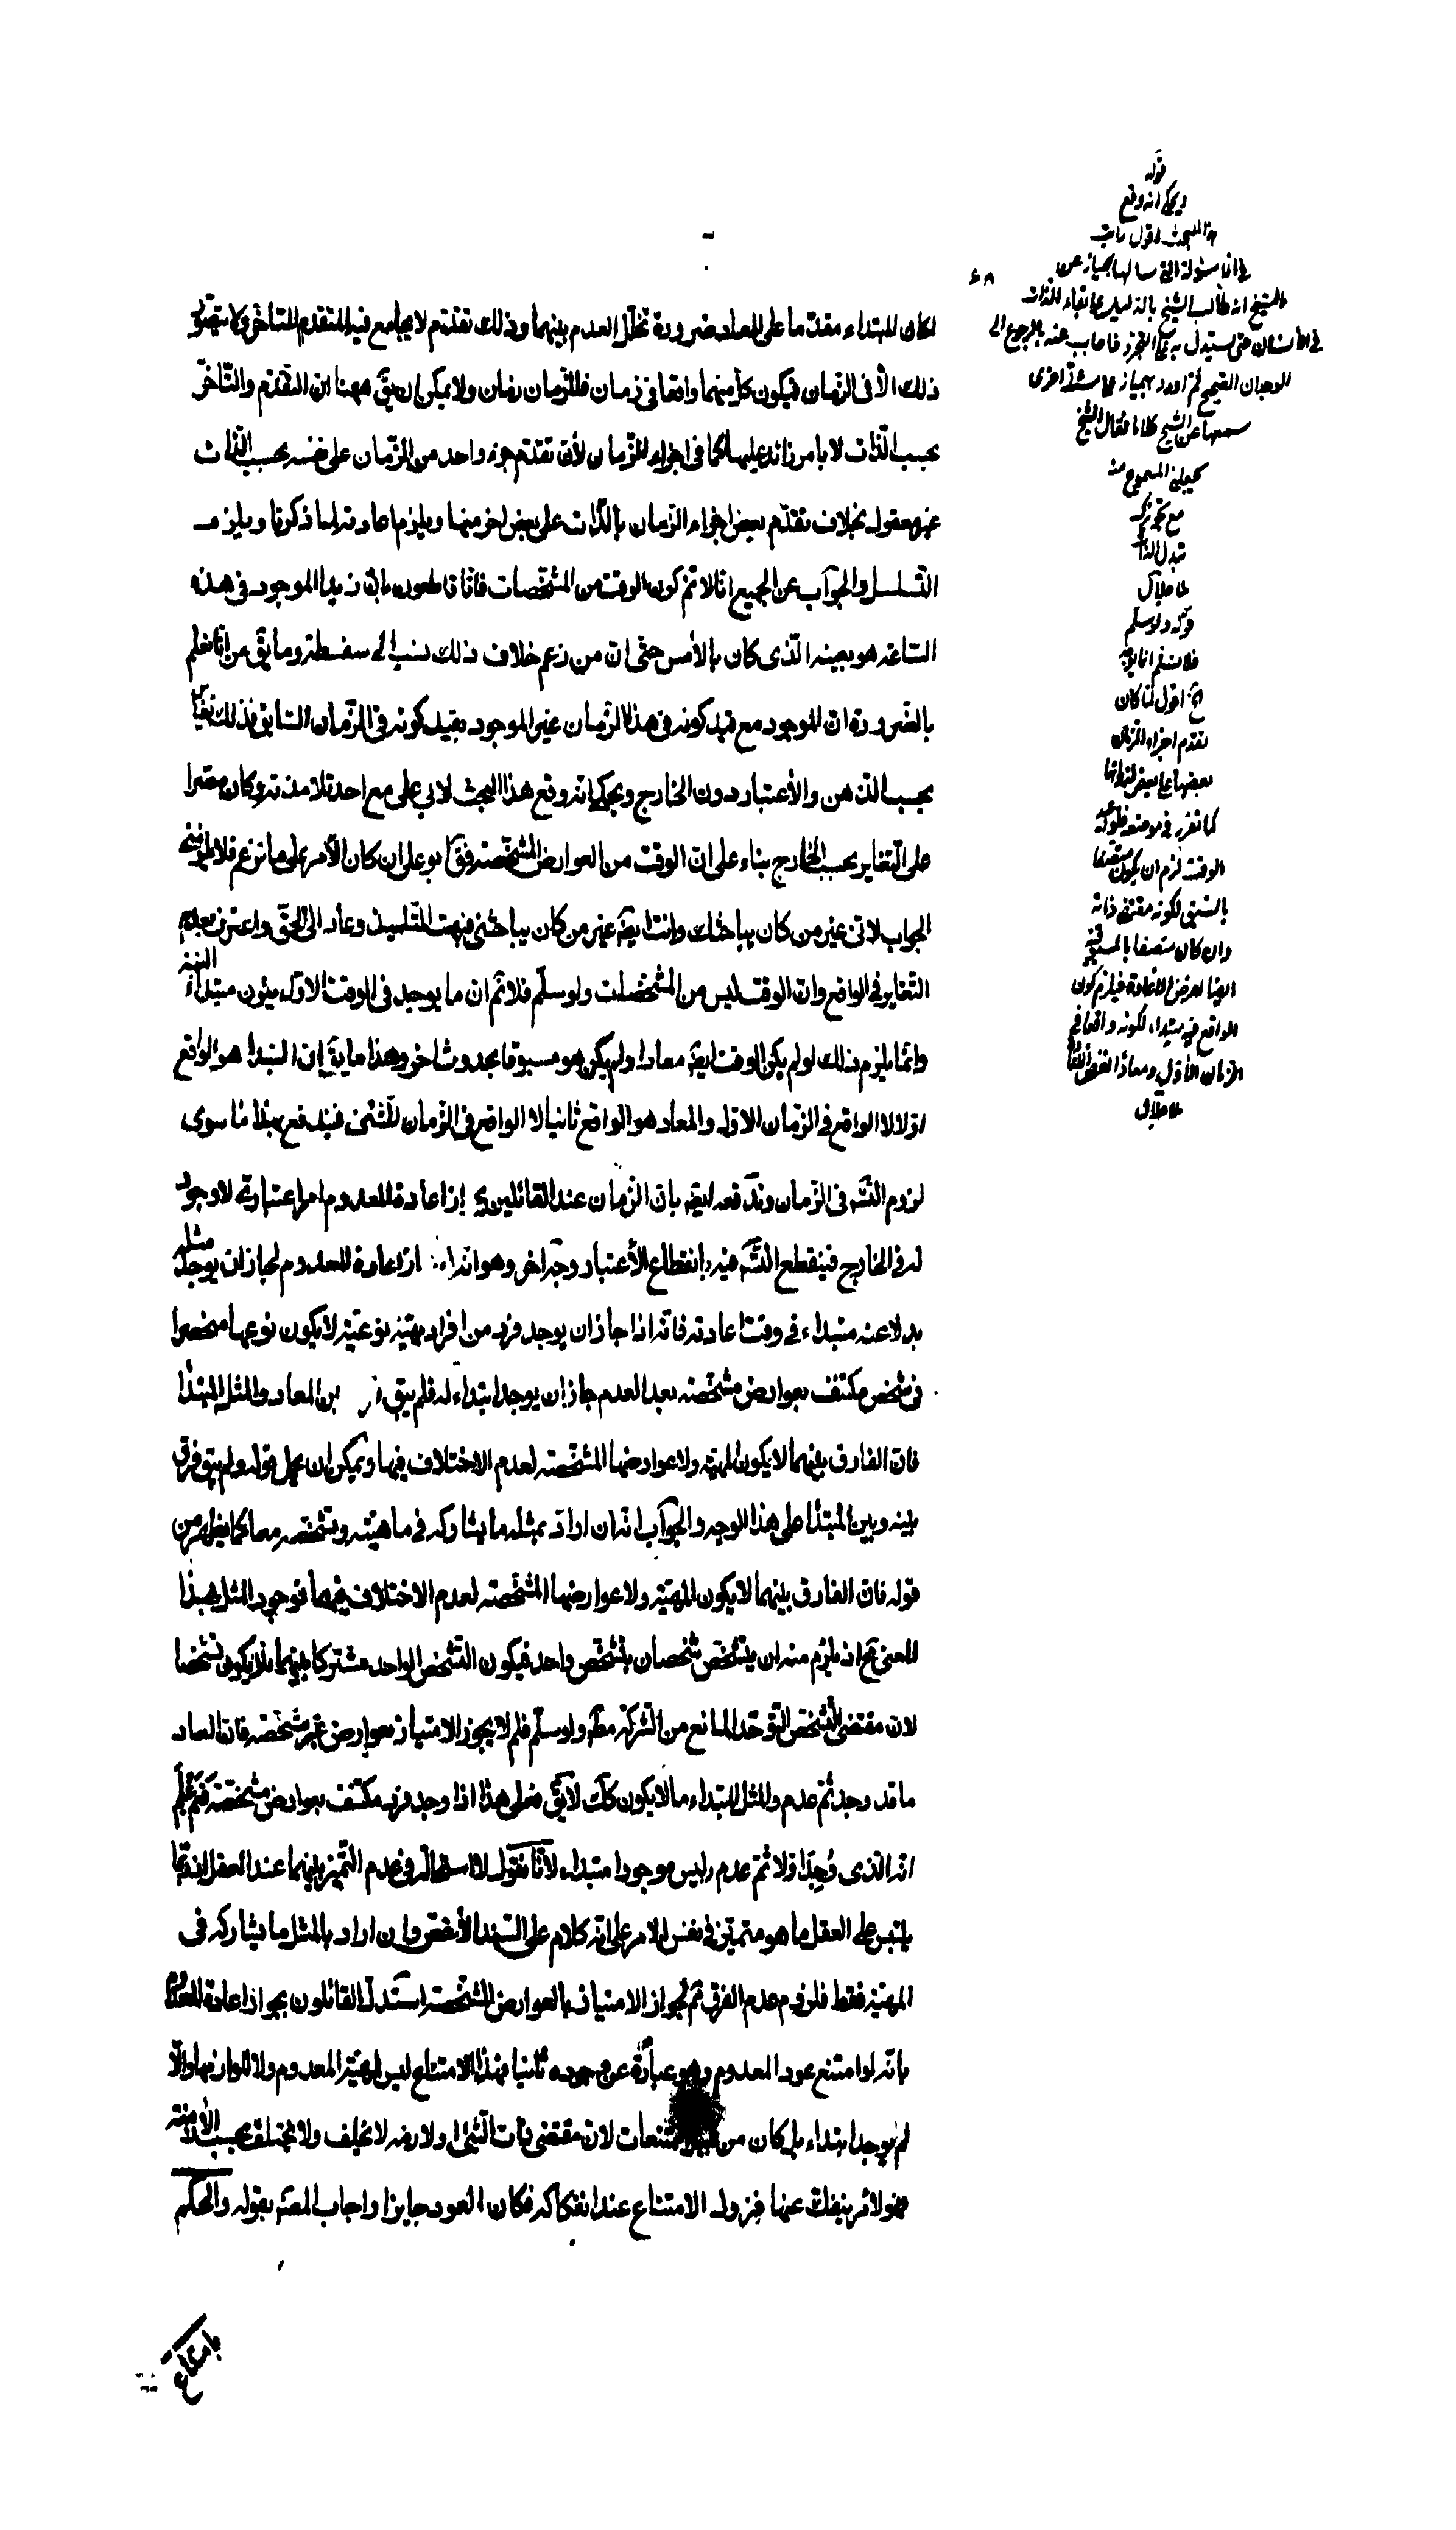 لكان المبتداء مقدما على المعاد ضرورة تخلل العدم بينهما وذلك تقدم لا يجامع فيه المتقدم المتأخر ولا يتصور
ذلك الا فى الزمان فيكون كل منهما واقعا فى زمان فللزمان زمان ولا يمكن ان يق ههنا ان التقدم والتأخر
بحسب الذات لا بامر زائد عليها كما فى اجزاء الزمان لأن تقدم جزء واحد من الزمان على نفسه بحسب الذات
غير معقول بخلاف تقدم بعض اجزاء الزمان بالذات على بعض اخر منها ويلزم اعادته لما ذكرنا ويلزم
التسلسل والجواب عن الجميع انا لا نم كون الوقت من المشخصات فانا قاطعون بان زيدا الموجود فى هذه
الساعة هو بعينه الذى كان بالأمس حتى ان من زعم خلاف ذلك نسب الى سفسطة وما يق من انا نعلم
بالضرورة ان الموجود مع قيد كونه فى هذا الزمان غير الموجود بقيد كونه فى الزمان السابق فذلك تغاير
بحسب الذهن والأعتبار دون الخارج ويحكى انه وقع هذا البحث لابى على مع احد تلامذته وكان مصرا
على التغاير بحسب الخارج بناء على ان الوقت من العوارض المشخصة فق ابو على ان كان الأمر على ما تزعم فلا يلزمنى
الجواب لانى غير من كان يباحثك وانت ايضا غير من كان يباحثنى فبهت التلميذ وعاد الى الحق واعترف بعدم
التغاير فى الواقع وان الوقت ليس من المشخصات ولو سلم فلا نم ان ما يوجد فى الوقت الاول يكون مبتداء البتة
وانما يلزم ذلك لو لم يكن الوقت ايضا معادا ولم يكن هو مسبوقا بحدوث اخر وهذا ما يق ان المبتدا هو الواقع
اولا لا الواقع فى الزمان الاول والمعاد هو الواقع ثانيا لا الواقع فى الزمان الثانى فيندفع بهذا ما سوى
لزوم التسه فى الزمان وندفعه ايضا بان الزمان عند القائلين باعادة المعدوم امر اعتبارى لا وجود
له فى الخارج فينقطع التسه فيه بانقطاع الأعتبار وجه اخر وهو انه اعادة المعدوم لجاز ان يوجد مثله
بدلا عنه مبتداء فى وقت اعادته فانه اذا جاز ان يوجد فرد من افراد مهية نوعية لا يكون نوعها منحصرا
فى شخص مكتنف بعوارض مشخصة بعد العدم جاز ان يوجد ابتداء له فلم يبق بين المعاد والمثل المبتدا
فان الفارق بينهما لا يكون المهية ولا عوارضها المشخصة لعدم الاختلاف فيها ويمكن ان يحمل قوله ولم يبق فرق
بينه وبين المبتدا على هذا الوجه والجواب انه ان اراد بمثله ما يشاركه فى ماهيته وتشخصه معا كما يظهر من
قوله فان الفارق بينهما لا يكون المهية ولا عوارضها المشخصة لعدم الاختلاف فيهما فوجود المثل بهذا
المعنى مح اذ يلزم منه ان يتشخص شخصان بتشخص واحد فيكون التشخص الواحد مشتركا بينهما فلا يكون تشخصا
لان مقتضى التشخص التوحد المانع من الشركة مطه ولو سلم فلم لا يجوز الامتياز بعوارض غير مشخصة فان المعاد
ما قد وجد ثم عدم والمثل المبتداء ما لا يكون كك لا يق فعلى هذا اذا وجد فرد مكتنف بعوارض مشخصة فبم يعلم
انه الذى وجد اولا ثم عدم وليس موجودا مبتداء لانا نقول لا استحالة فى عدم التميز بينهما عند العقل اذ ربما
يلتبس على العقل ما هو متميز فى نفس الامر على انه كلام على السند الأخص وان اراد بالمثل ما يشاركه فى
المهية فقط فلزوم عدم الفرق مم لجواز الامتياز بالعوارض المشخصة استدل القائلون بجواز اعادة المعدوم
بانه لو امتنع عود المعدوم وهو عبارة عن وجوده ثانيا فهذا الامتناع ليس لمهية المعدوم ولا للوازمها والا
لم يوجد ابتداء بل كان من الممتنعات لان مقتضى ذات الشئ او لازمه لا يتخلف ولا يختلف بحسب الأزمنة
فهو لامر ينفك عنها فيزول الامتناع عند انفكاكه فكان العود جايزا واجاب المصه بقوله والحكم
بامتناع
٤٨
قوله
ويحكى انه وقع
هذا البحث اقول رايت
فى اسئولة التى سالها بهمنيار عن
الشيخ انه طالب الشيخ بالدليل على بقاء الذات
فى الأنسان حتى يستدل به على التجرد فاجاب عنه بالرجوع الى
الوجدان الصحيح ثم اورد بهمنيار على مسئلة اخرى
سمعها عن الشيخ كلاما فقال الشيخ
المسموع منه
مع تجويزك
تبدل الذات
ملا جلال
قوله ولو سلم
فلا نسلم ان ما يوجد
الخ اقول لما كان
تقدم اجزاء الزمان
بعضها على بعض لذواتها
كما تقرر فى موضعه فلو اعيد
الوقت لزم ان يكون متصفا
بالسبق لكونه مقتضى ذاته
وان كان متصفا بالمسبوقية
ايضا لعروض الأعادة فيلزم كون
الواقع فيه مبتداء لكونه واقعا فى
الزمان الأول ومعادا لفرض
ملا جلال